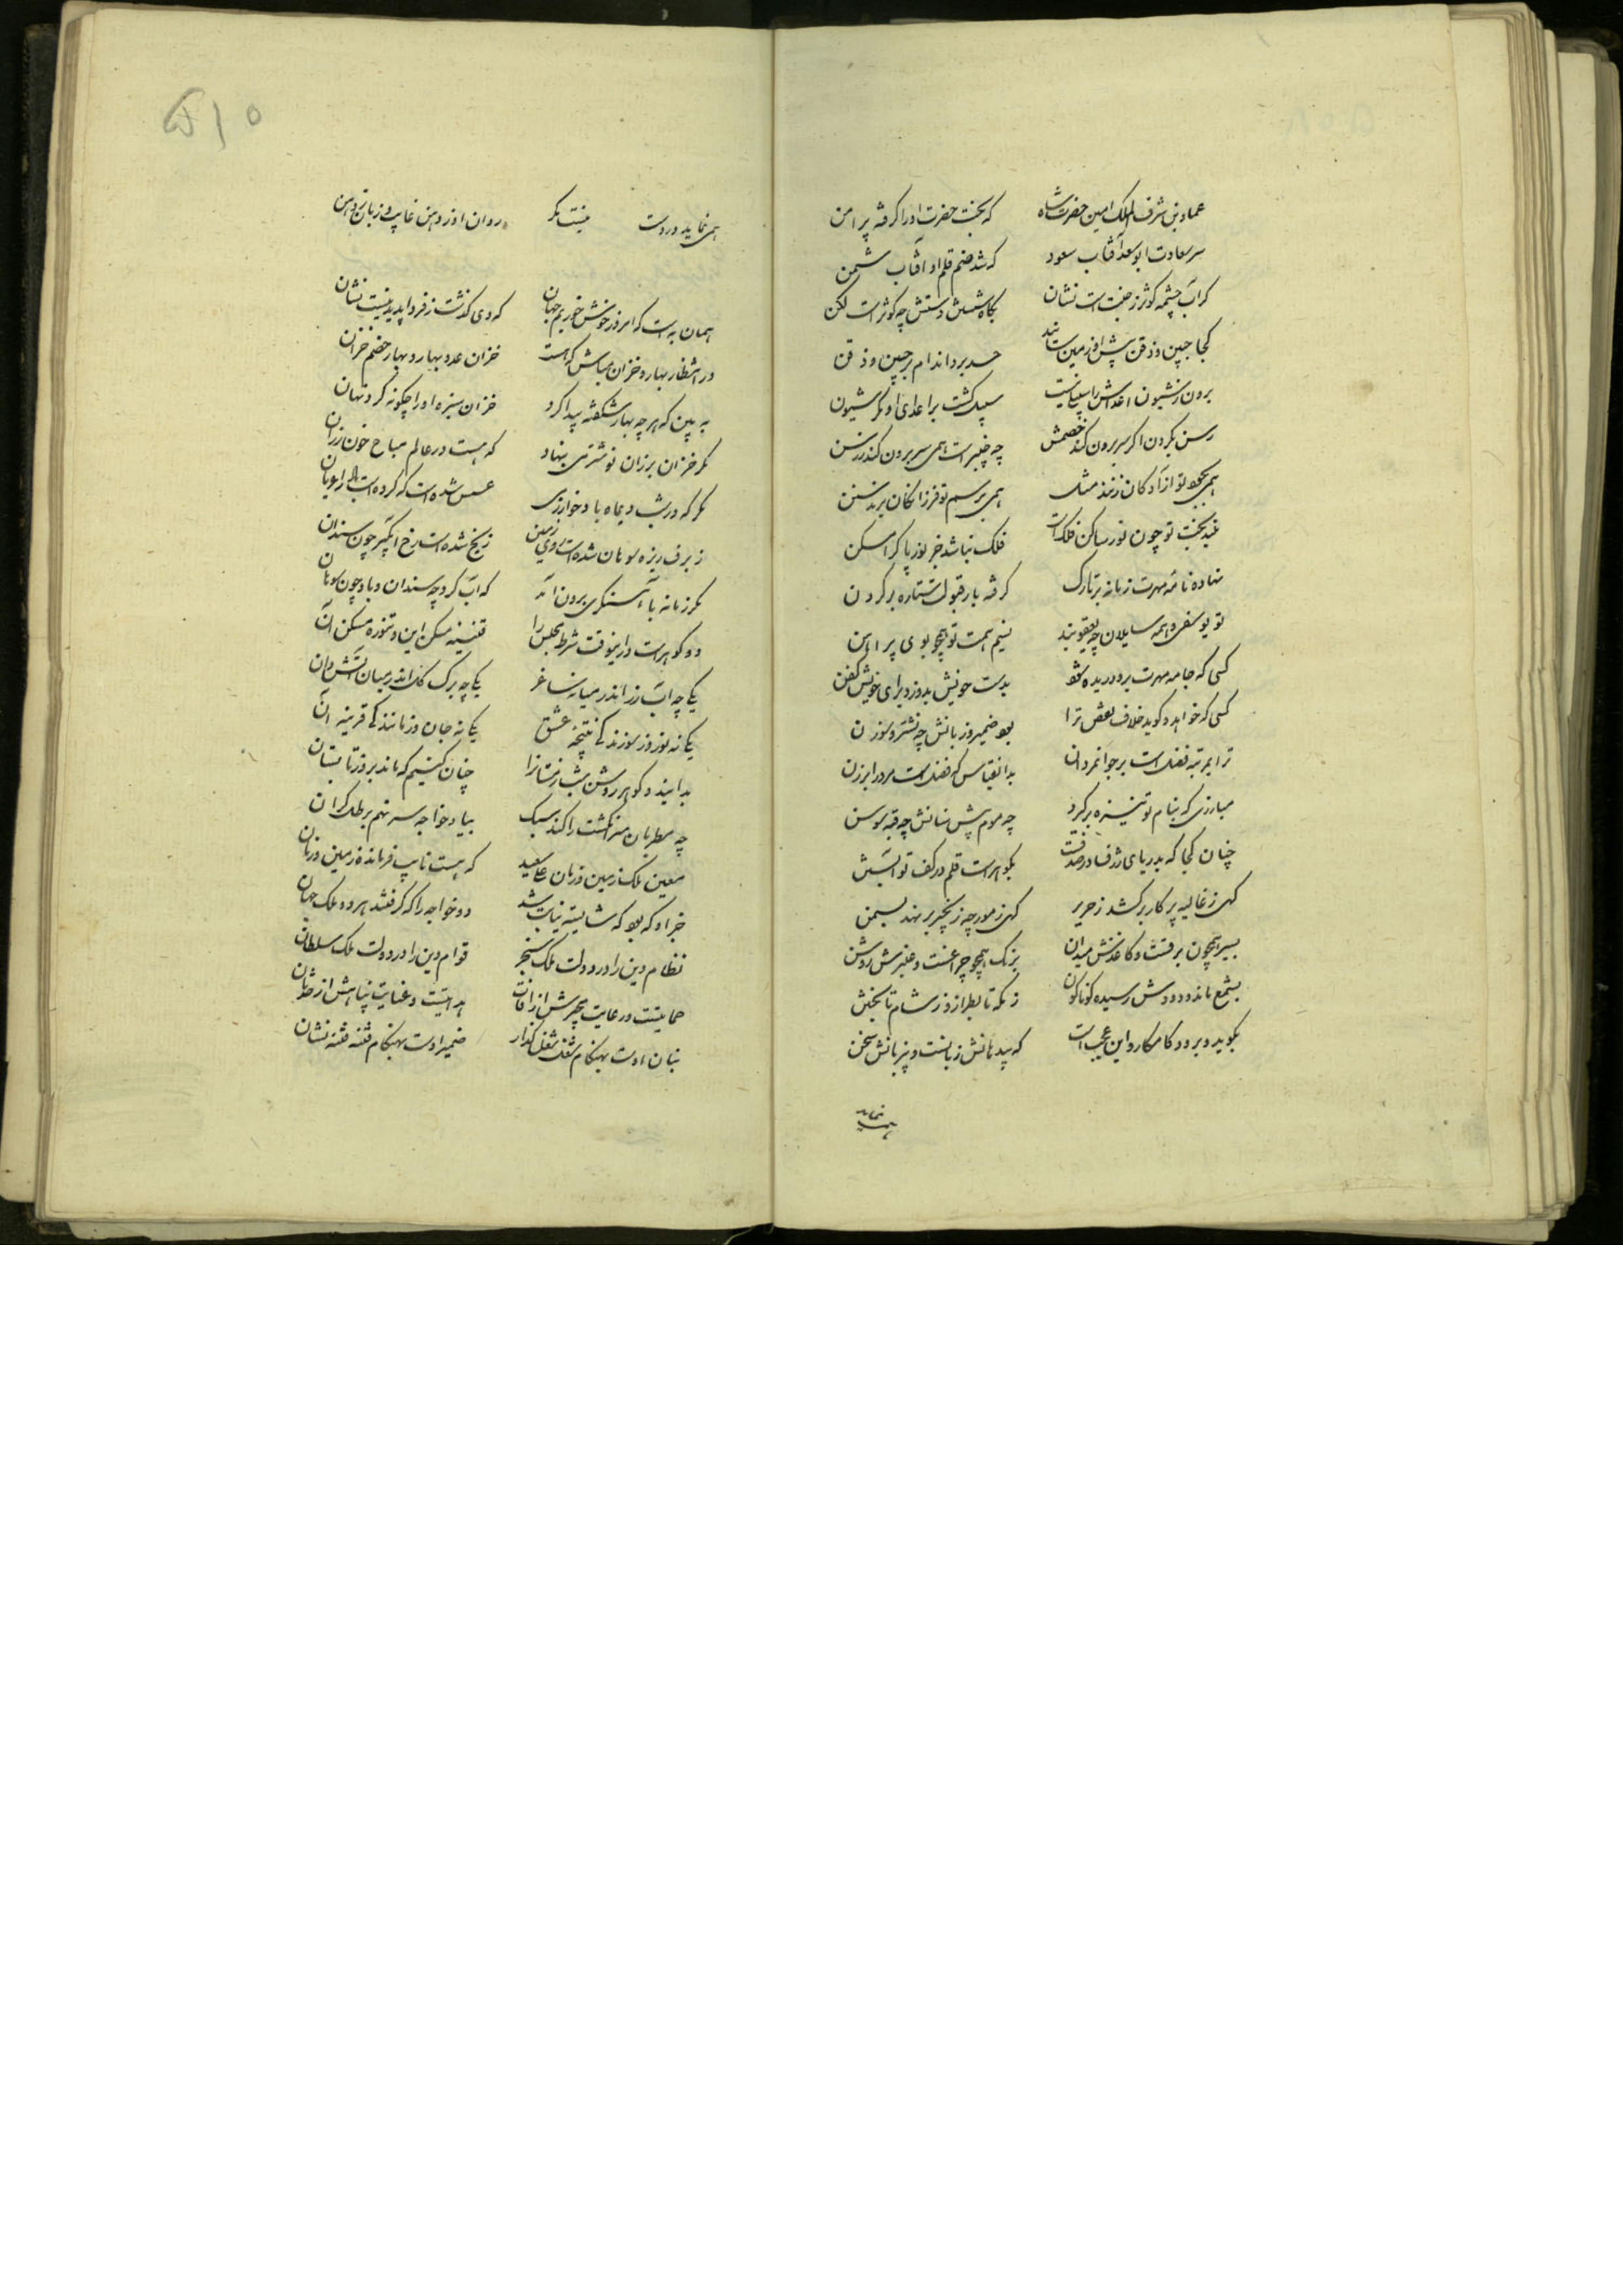 عماد دین شرف الملک امین حضرت شاه که بخت حضرت او را گرفته پیرامن
سر سعادت ابو سعد آفتاب سعود که شد صنم قلم او آفتاب شمن
کر آب چشمه کوثر ز جنت است نشان بکاه بخشش دستش چه کوثر است لکن
کجا جبین و ذقن پیش او زمین سایند حسد برد اندام بر جبین و ذقن
برون ز شیون اعداش را
رسن بکردن اکر سر برون کند خصمش چه چنبر است همی سر برون کند ز رسن
همی بجود تو از آدکان زنند مثل همی برسم تو فرزانکان برند سنن
بخت تو چون نور ساکن فلک است فلک نباشد جز نور پاک را مسکن
نهاده نامه مهرت زمانه بر تارک گرفته بار قبولت ستاره بر کردن
تو یوسفی و همه سایلان چه یعقوبند نسیم همت تو همچو بوی پیراهن
کسی که جامه مهرت برو دریده شود بدست خویش بدوزد برای خویش کفن
کسی که خواهد و کوید خلاف بعض ترا بود ضمیر و زبانش چه نشتر و سوزن
ترا بمرتبه فضل است بر جوانمردان بدانقیاس که فضلست مرد را بر زن
مبارزی که بنام تو نیزه بر گیرد چه موم پیش سنانش چه قبه جوسن
چنان کجا که بدریای ژرف در صدفست بکوهر است قلم در کف تو آبستن
کهی ز غالیه پرکار بر کشد ز حریر کهی ز مورچه زنجیر بر نهد بسمن
بسیر همچون برقست و کاغذش میدان برنک همچو چراغست و عنبرش روغن
بشمع ماند و دودش رسیده کوناکون ز مکه تا بطراز و ز شام تا بختن
بکوید و برود کامکار و این عجب است که بیدهانش زبانست و بیزبانش سخن
همی نماید
۵۱۰
همی نماید در دست نیست مکر روان او ز دهن غایب و زبان ز دهن
همان به است که امروز خوش خوریم جهان که دی کذشت ز فردا پدید نیست نشان
در انتظار بهار و خزان مباش که هست خزان عدو بهار و بهار خصم خزان
به بین که هر چه بهار شکفته پیدا کرد خزان سبزه او را چکونه کرد نهان
مکر خزان بر زان نوشتری بنهاد که هست در عالم مباح خون رزان
مکر که در شب دیماه باد خوارزمی عسس شده است که کرده است را عریان
ز برف ریزه سوهان شده است روی زمین ز یخ شده است رخ آبکیر چون سندان
مکر زمانه با آهنکری برون آمد که آب کرد چه سندان و باد چون سوهان
دو کوهر است درینوقت شرط مجلس را قنینه مسکن این و تنوره مسکن آن
یکی چه آب زر اندر میانه ساغر یکی چه برک کل اندر میان آتش دان
یکانه نوروز سوزند کی نتیجه عشق یکانه جان و زمانند کی قرینه آن
بدانید و کوهر روشن شب زمستانرا چنان کنیم که ماند بروز تابستان
چه مطربان سر انکشت را کند سبک بیاد خواجه سر نهم برطل کران
معین ملک زمین و زمان علی سعید که هست نایب فرمانده زمین و زمان
جز او که بود که شایسته نیابت شد دو خواجه را که گرفتند هر دو ملک جهان
نظام دین را در دولت ملک سنجر قوام دین را در دولت ملک سلطان
حمایتست و رعایت بچیرش از آفات هدایتست و عنایت پناهش از حدثان
بنان اوست بهنکام شغل شغل کذار ضمیر اوست بهنکام فتنه فتنه نشان